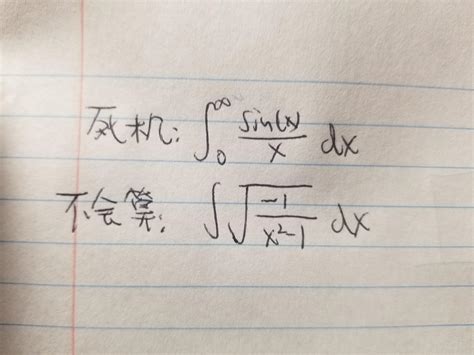 死机: ∫₀^∞ sin(x)/x dx
不会算: ∫√(-1/(x²-1)) dx